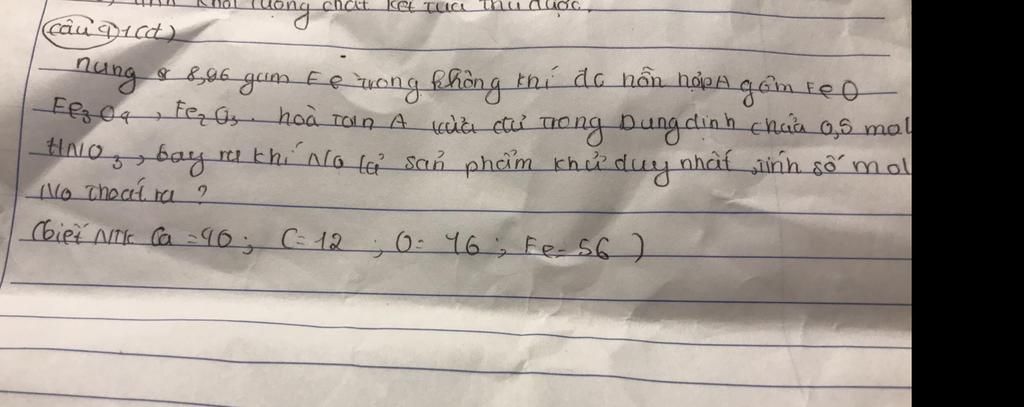 khối lượng chất kết tủa thu được.
Câu 9) 1(đ)
nung 8 8,96 gam Fe trong không khí đc hỗn hợp A gồm FeO
Fe3O4, Fe2O3. hoà tan A vừa đủ trong Dung dịnh chứa 0,5 mol
HNO3, bay ra khí No là sản phẩm khử duy nhất, tính số mol
No thoát ra ?
(biết NTK Ca = 40; C = 12 ; O = 16 ; Fe = 56 )